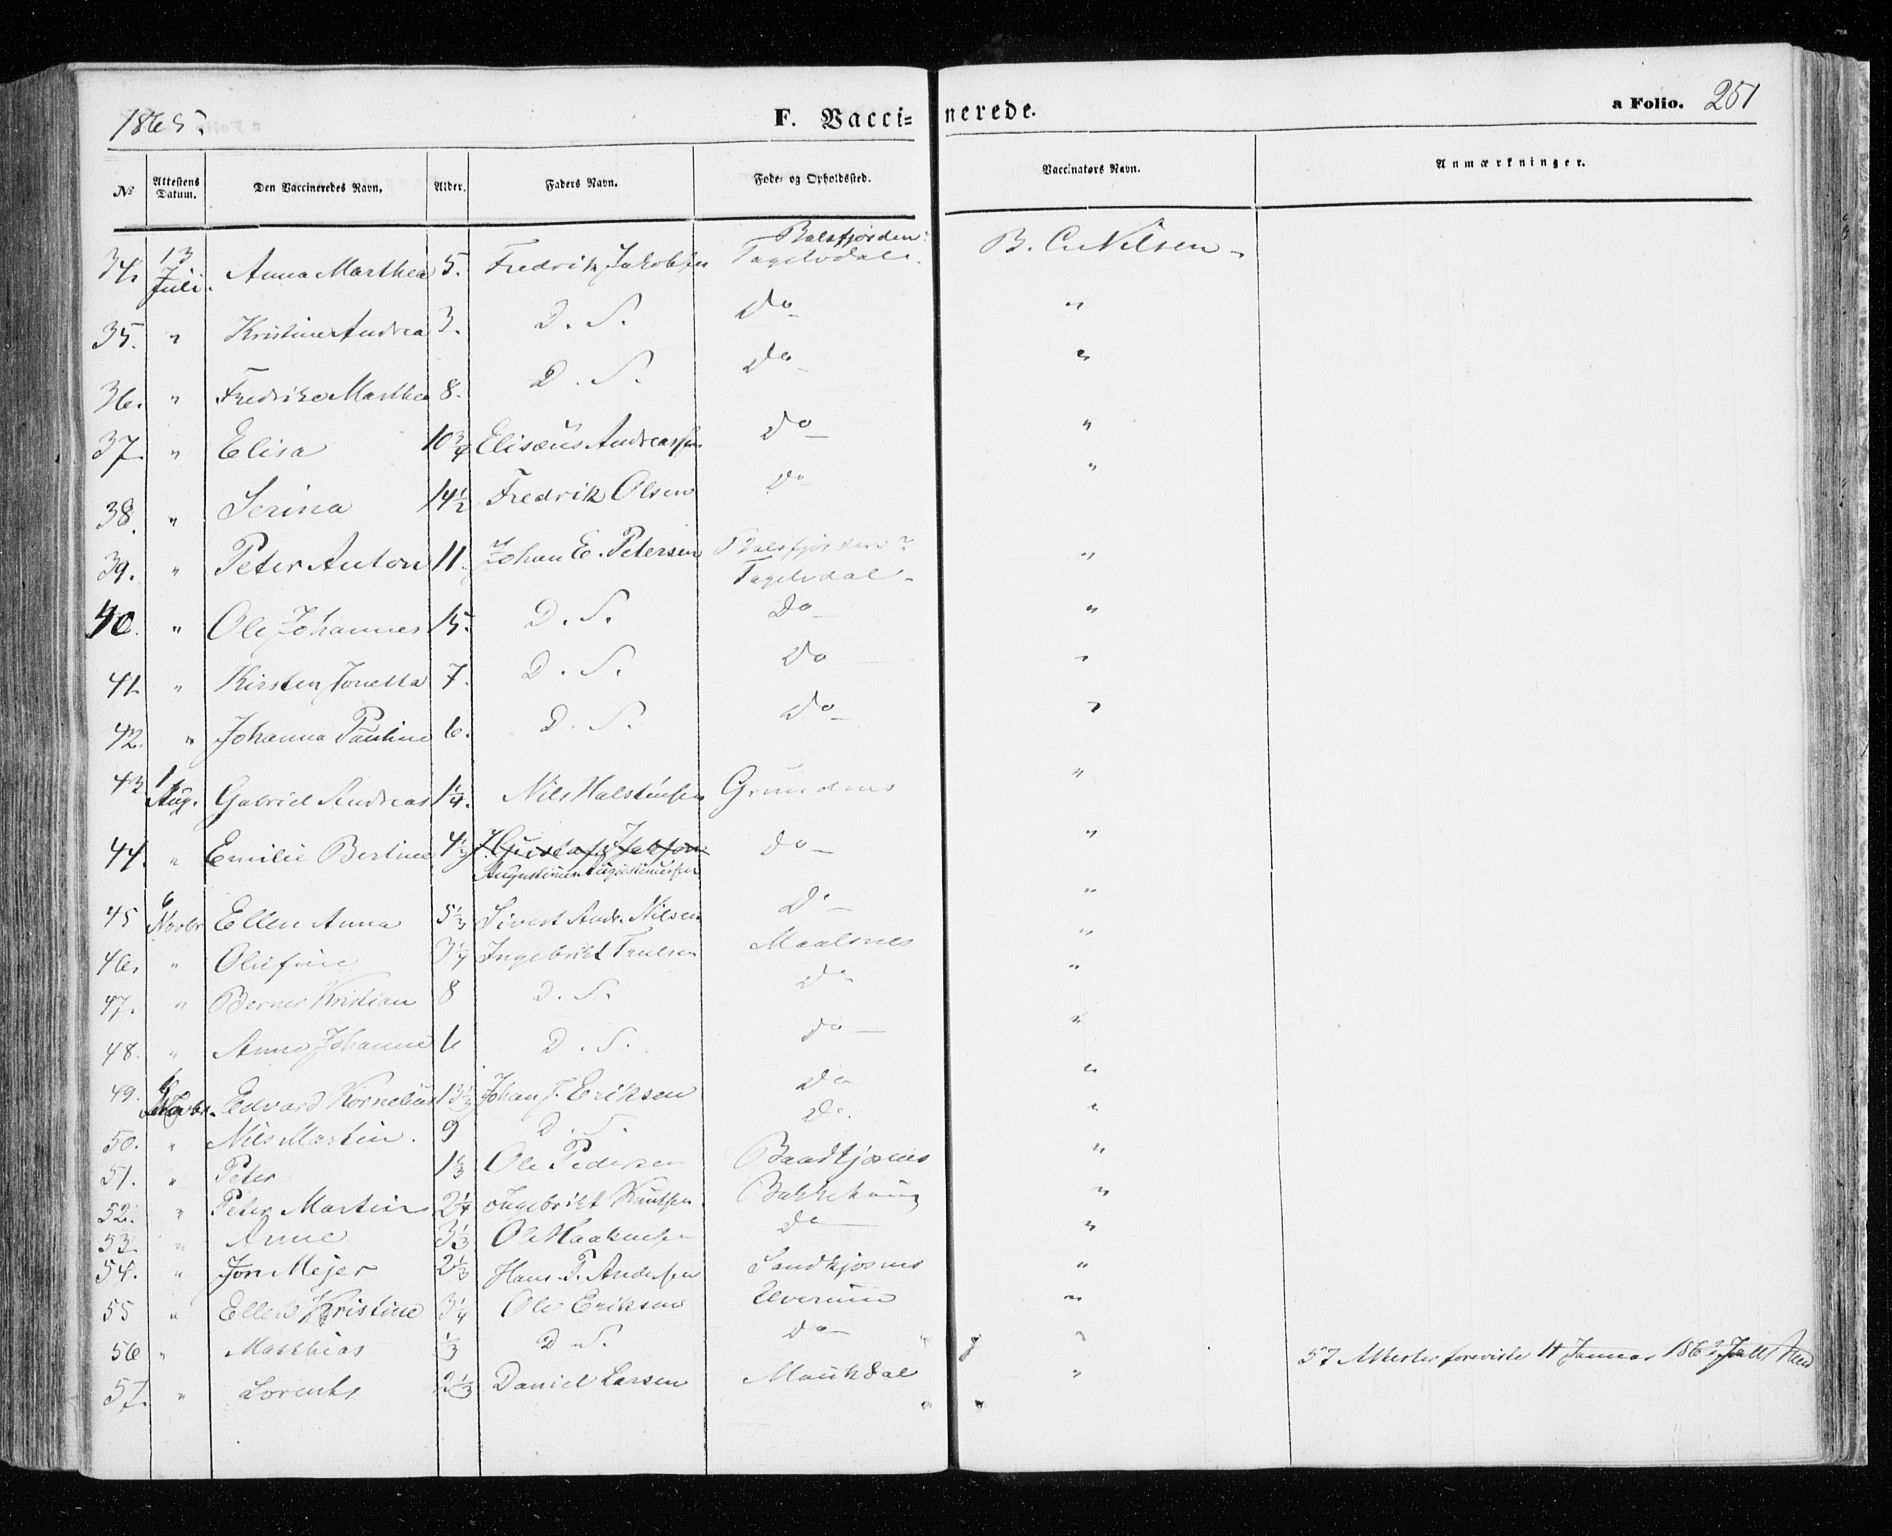 1865.
F. Vaccinerede.
a Folio. 251
No Attestens Datum. Den Vaccineredes Navn. Alder. Faders Navn. Føde- og Opholdssted. Vaccinatørs Navn. Anmærkninger.
34. 13 Juli. Anna Marthea 5. Fredrik Jakobsen Balsfjorden: Tagelvdal. B. C. Nilsen
35. " Kristine Andrea 3. D. S. Do "
36. " Fredrike Marthea 8. D. S. Do "
37. " Elisa 10 3/4 Elisæus Andreassen Do "
38. " Serina 14 1/2 Fredrik Olsen Do "
39. " Peter Anton 11. Johan E. Petersen Balsfjorden Tagelvdal "
40. " Ole Johannes 15. D. S. Do "
41. " Kirsten Jonetta 7. D. S. Do "
42. " Johanna Pauline 6. D. S. Do "
43. 1 Aug. Gabriel Andreas 1 1/4. Nils Halstensen Grundnes "
44. " Emilie Bertine 4 1/2 Augustinus Augustinussen Do "
45 6 Novbr Ellen Anna 5 1/3 Sivert Andr. Nilsen Do "
46. " Olufine 3 1/4 Ingebrikt Maalsnes "
47. " Berner Kristian 8 D. S. Do "
48. " Anne Johanne 6 D. S. Do "
49. 6 Novbr. Edvard Kornelius 13 1/3 Johan J. Eriksen Do "
50. " Nils Martin. 9 D. S. Do. "
51. " Peter 1 1/3 Ole Pedersen "
52. " Peter Martin 2 1/4 Ingebrikt Knutsen Bakkehaug "
53. " Anne 3 1/3 Ole Haakensen Do "
54. " Jon Mejer 2 1/3 Hans P. Andersen "
55 " Ellen Kristine 3 1/4 Ole Eriksen Elverum "
56 " Matthias 1/3 D. S. Do "
57 Attester foreviste 11 Januar
57. " Lorents 2 1/3 Daniel Larsen Maukdal "